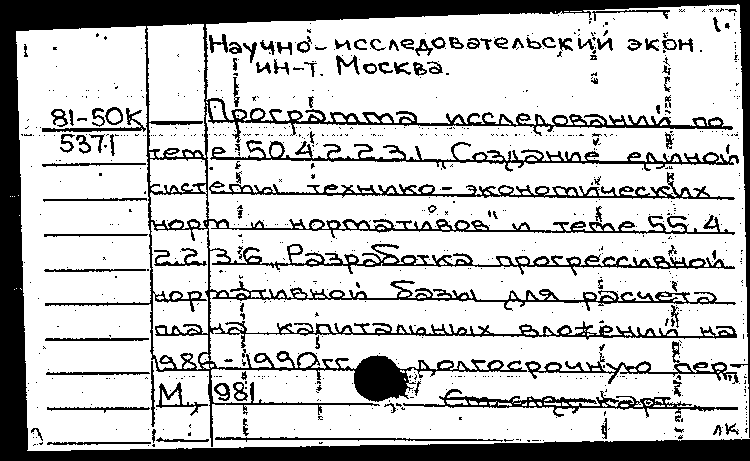 1.
Научно-исследовательский экон.
ин-т. Москва.
81-50К Программа исследований по
5371 теме 50.4.2.2.3.1 „Создание единой
системы технико-экономических
норм и нормативов" и теме 55.4.
2.2.3.6 „Разработка прогрессивной
нормативной базы для расчета
плана капитальных вложений на
1986-1990гг. долгосрочную пер-
М., 1981.
См. след. карт.
лк